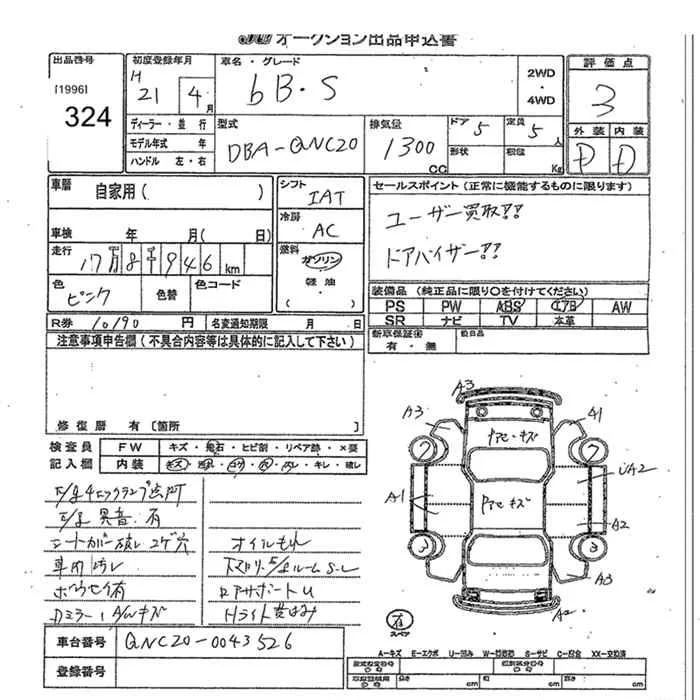 JU オークション出品申込書
出品番号
[1996]
324
初度登録年月
H 21 4月
車名・グレード
bB・S
2WD
・
4WD
評価点
3
外装 内装
D D
ディーラー・並行
モデル年式 年
ハンドル 左・右
型式
DBA-QNC20
排気量
1300 CC
ドア 5
定員 5人
形状
積載 Kg
車歴 自家用( )
車検 年 月( 日)
走行
17万8千946 km
色
ピンク
色替
色コード
シフト
IAT
冷房
AC
燃料
ガソリン
軽油
( )
セールスポイント(正常に機能するものに限ります)
ユーザー買取!!
ドアバイザー!!
装備品(純正品に限り○を付けてください)
PS PW ABS エアB AW
SR ナビ TV 本革
新車保証書
有・無
R券 10190 円
名変通知期限 月 日
注意事項申告欄(不具合内容等は具体的に記入して下さい)
修復歴 有〔箇所
検査員
記入欄
FW キズ・飛石・ヒビ割・リペア跡・×要
内装 キズ・汚れ・コゲ・穴・ハレ・キレ・破レ
E/g 異音 有
シートカバー破レ コゲ穴
車内 汚レ
オイルもれ
Dミラー、A/Wキズ
A3
A3
A1
7 7
アセ・キズ
アセ キズ
UA2
A1
A2
3 3
A3
A2
有
スペア
A-キズ E-エクボ U-凹み W-補修跡 S-サビ C-腐食 XX-交換済
車台番号 QNC20-0043526
登録番号
長さ cm 幅 cm 高さ cm